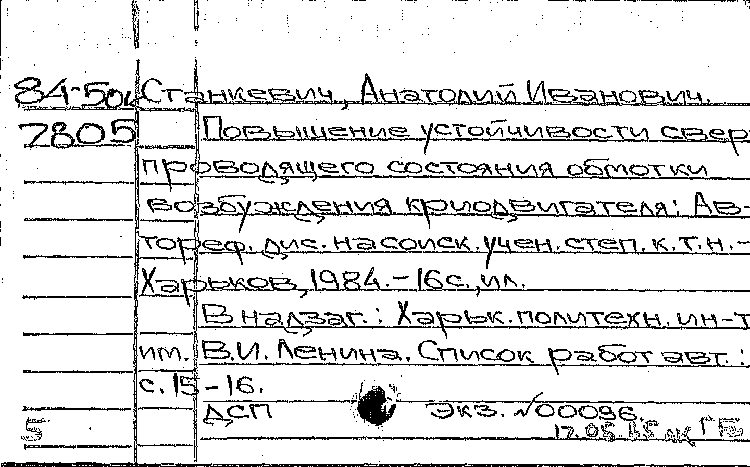 84-50к Станкевич, Анатолий Иванович.
7805 Повышение устойчивости сверх
проводящего состояния обмотки
возбуждения криодвигателя: Ав-
тореф. дис. на соиск. учен. степ. к.т.н. -
Харьков, 1984. - 16с., ил.
В надзаг.: Харьк. политехн. ин-т
им. В.И. Ленина. Список работ авт.:
с. 15-16.
ДСП Экз. √00096.
5 17.05.85